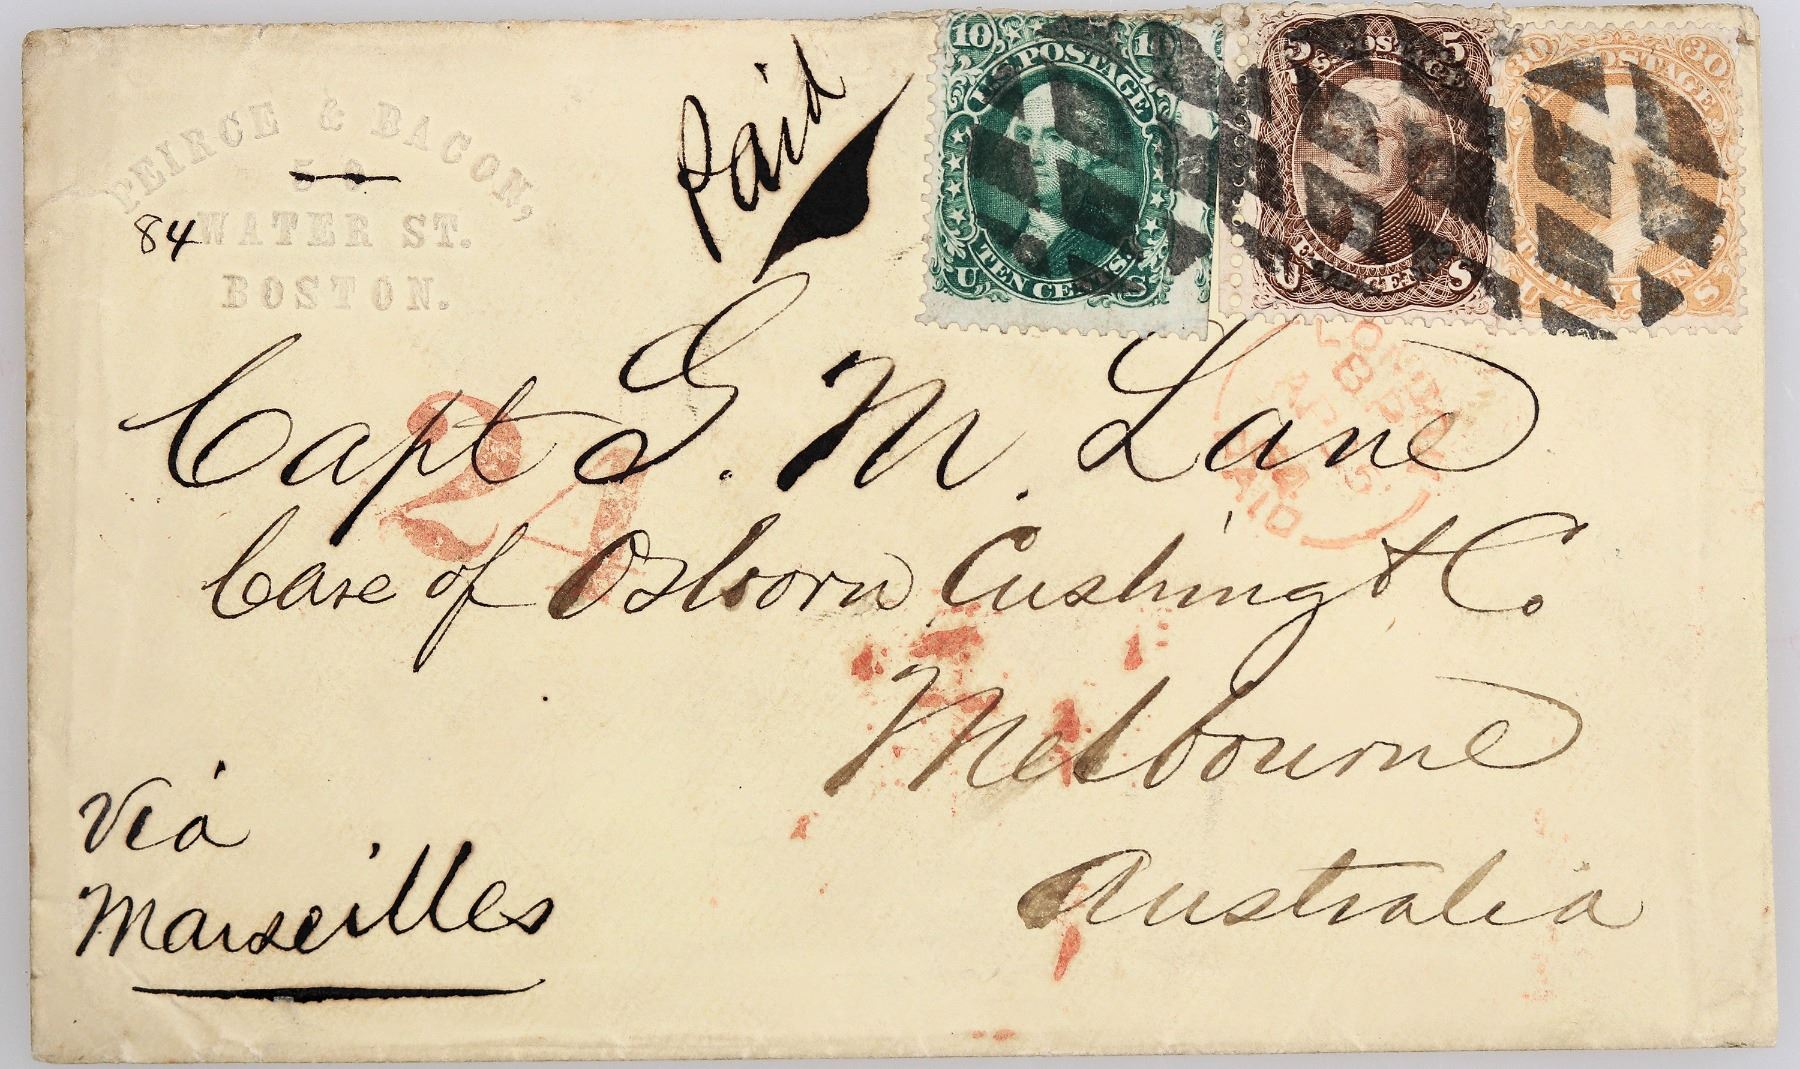 PEIRCE & BACON,
84 WATER ST.
BOSTON.
Paid
10 10
U.S. POSTAGE
TEN CENTS.
U S
5 5
U.S. POSTAGE
FIVE CENTS
U S
30 30
POSTAGE
THIRTY CENTS
U S
Capt G. M. Lane
Care of Osborn Cushing & Co
Melbourne
Australia
Via
Marseilles
24
LONDON
PAID